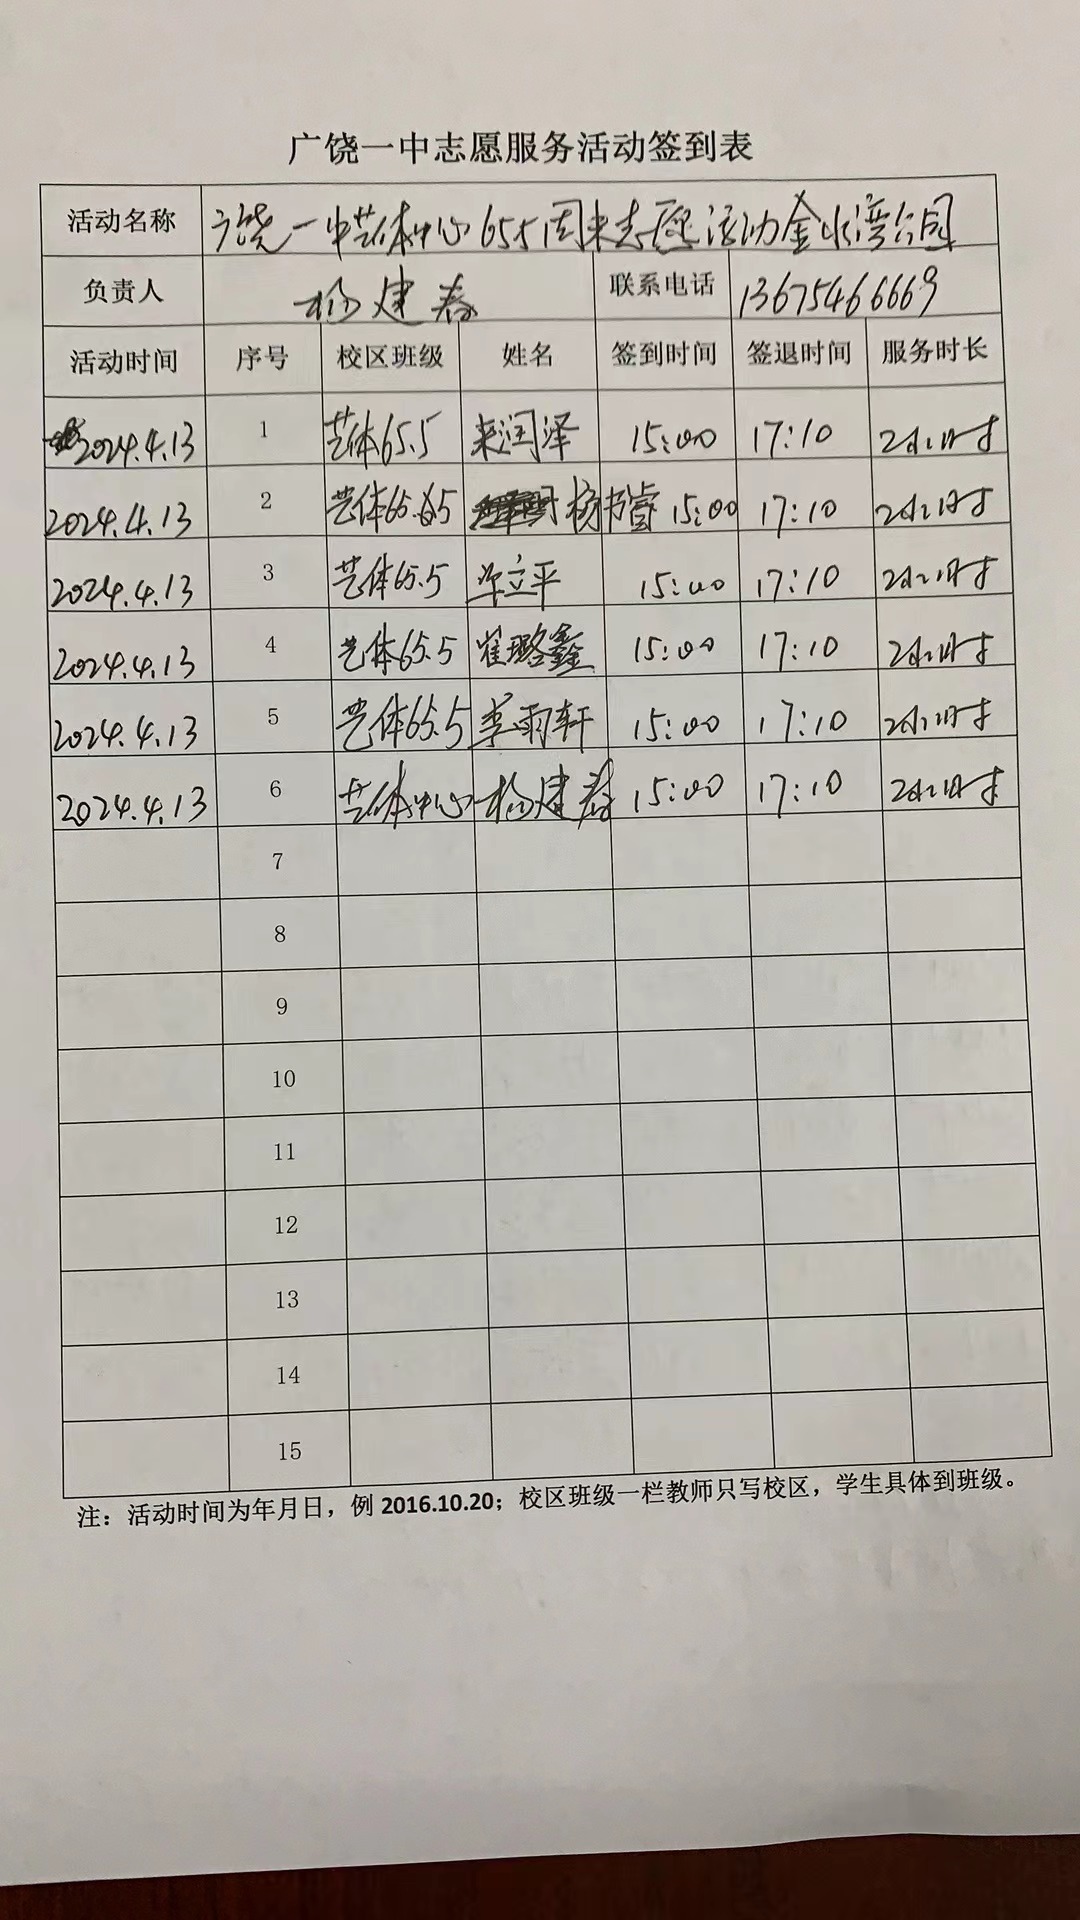 广饶一中志愿服务活动签到表
活动名称 广饶一中艺体中心65.5周末志愿活动金水湾公园
负责人 杨建春 联系电话 13675466669
活动时间 序号 校区班级 姓名 签到时间 签退时间 服务时长
2024.4.13 1 艺体65.5 来润泽 15:00 17:10 2小时
2024.4.13 2 艺体65.5 杨书睿 15:00 17:10 2小时
2024.4.13 3 艺体65.5 立平 15:00 17:10 2小时
2024.4.13 4 艺体65.5 崔璐鑫 15:00 17:10 2小时
2024.4.13 5 艺体65.5 李雨轩 15:00 17:10 2小时
2024.4.13 6 艺体中心 杨建春 15:00 17:10 2小时
7
8
9
10
11
12
13
14
15
注：活动时间为年月日，例 2016.10.20；校区班级一栏教师只写校区，学生具体到班级。